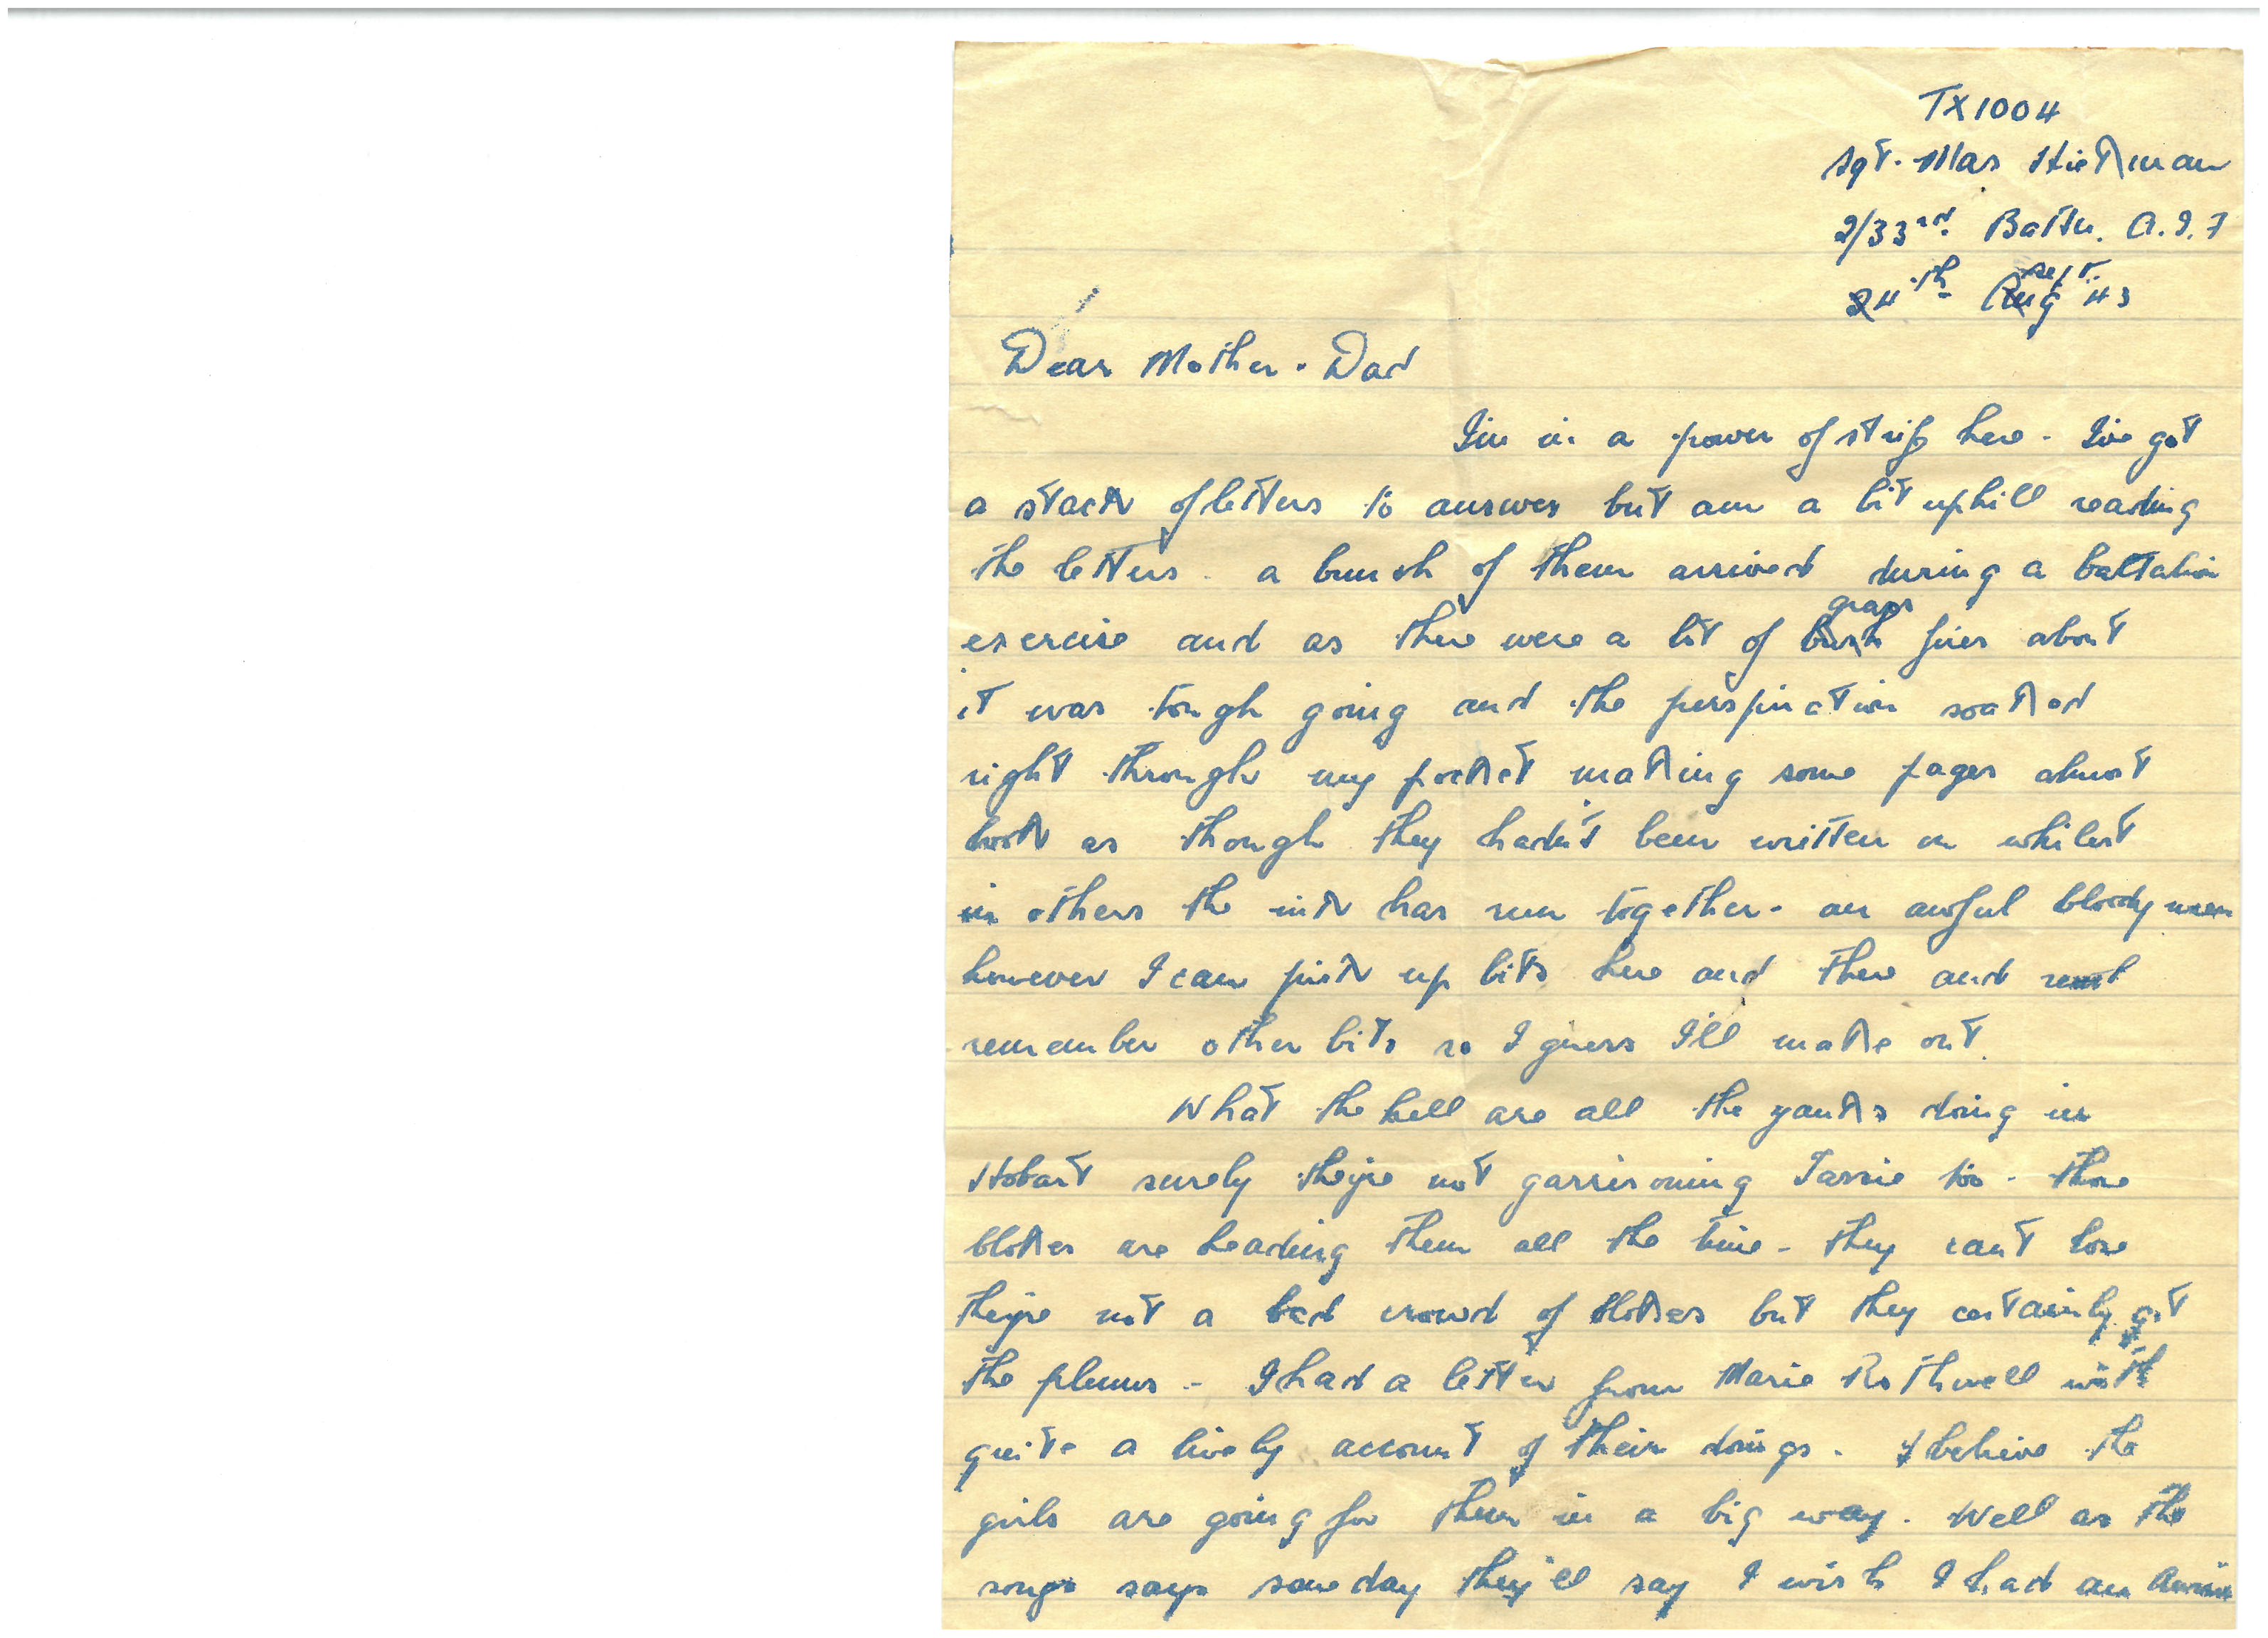 TX1004
Sgt. Max Hickman
2/33rd. Battn. A.I.F
24th Aug Sept. 43
Dear Mother . Dad
I'm in a power of strife here - I've got
a stack of letters to answer but am a bit uphill reading
the letters - a bunch of them arrived during a battalion
exercise and as there were a lot of bush grass fires about
it was tough going and the perspiration soaked
right through my pocket making some pages almost
look as though they hadn't been written on whilst
in others the ink has run together - an awful bloody mess
however I can pick up bits here and there and
remember other bits so I guess I'll make out.
What the hell are all the yanks doing in
Hobart surely they're not garrisoning Tassie too - those
blokes are heading them all the time - they can't lose
they're not a bad crowd of blokes but they certainly get
the plums - I had a letter from Marie Rothwell with
quite a lively account of their doings. I believe the
girls are going for them in a big way. Well as the
song says some day they'll say I wish I had an Aussie